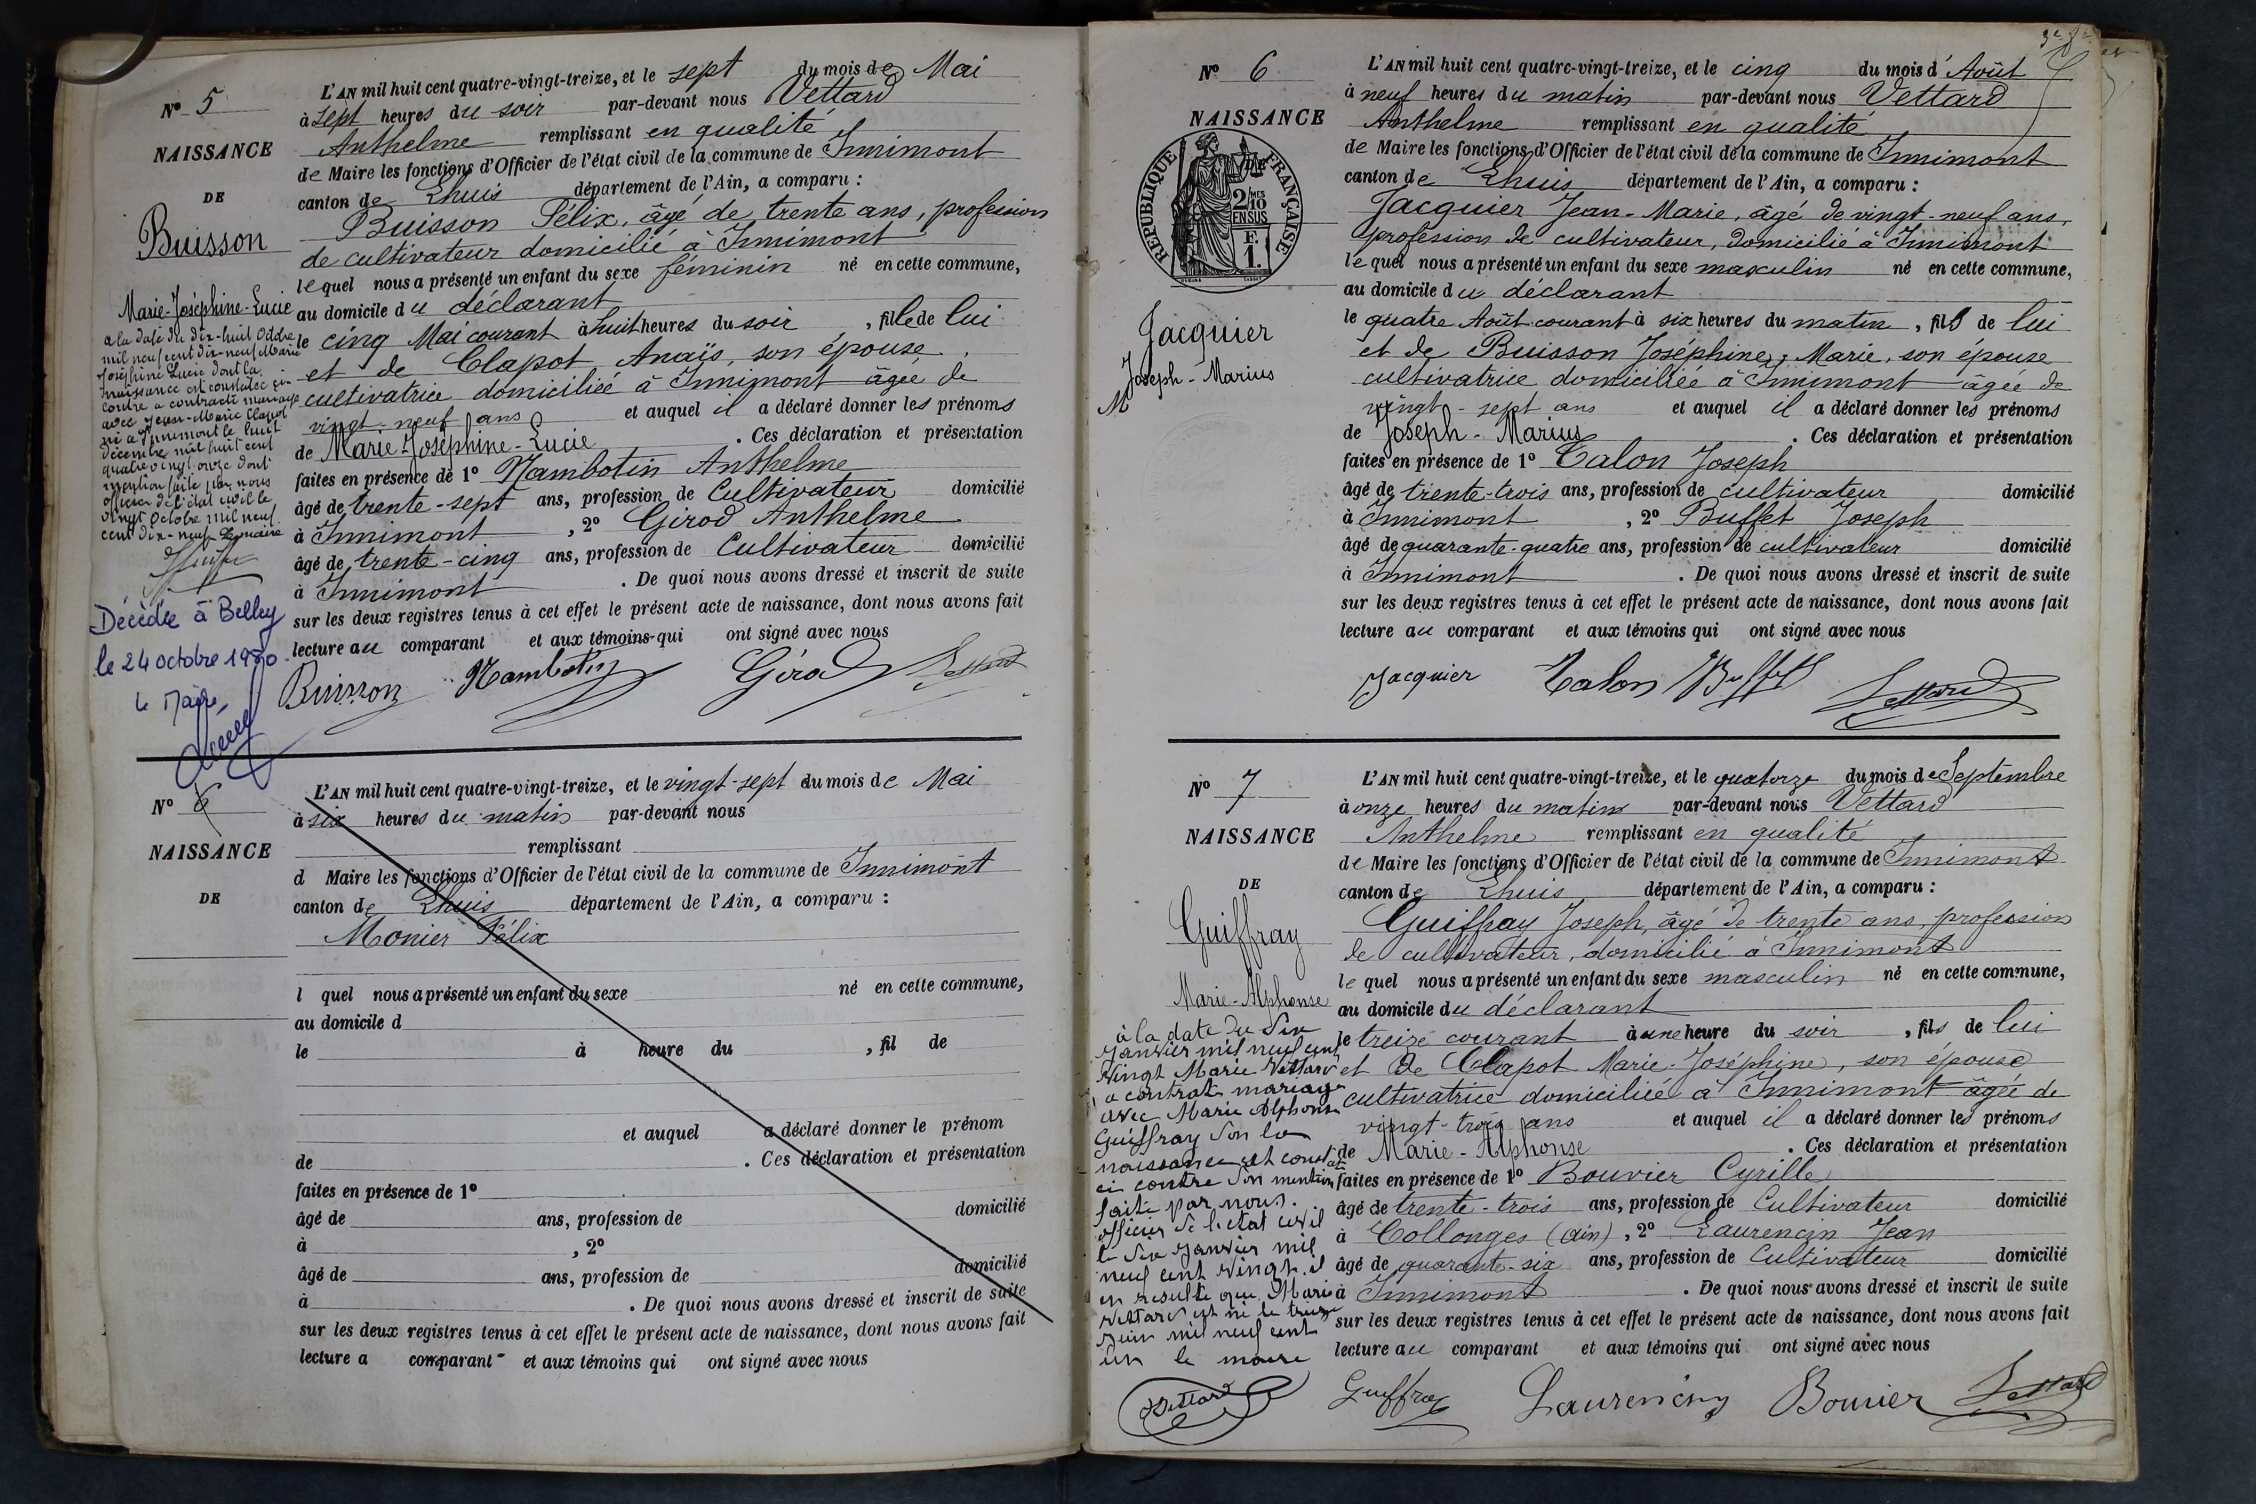 N° 5
NAISSANCE
DE
Buisson
Marie-Joséphine-Lucie
a la date du dix-huit Octobre
mil neuf cent dix-neuf Marie
Joséphine Lucie dont la
naissance est constatée ci-
contre a contracté mariage
avec Jean-Marie Clapot
né à Innimont le huit
décembre mil huit cent
quatre vingt onze dont
mention faite par nous
officier de l'état civil le
vingt Octobre mil neuf
cent dix-neuf Le maire
Décédée à Belley
le 24 octobre 1980.
Le Maire,
L'AN mil huit cent quatre-vingt-treize, et le sept du mois de Mai
à sept heures du soir par-devant nous Vettard
Anthelme remplissant en qualité
de Maire les fonctions d'Officier de l'état civil de la commune de Innimont
canton de Lhuis département de l'Ain, a comparu :
Buisson Félix, âgé de trente ans, profession
de cultivateur domicilié à Innimont
lequel nous a présenté un enfant du sexe féminin né en cette commune,
au domicile du déclarant
le cinq Mai courant à huit heures du soir , fille de lui
et de Clapot Anaïs, son épouse
cultivatrice domiciliée à Innimont âgée de
vingt-neuf ans et auquel il a déclaré donner les prénoms
de Marie-Joséphine-Lucie . Ces déclaration et présentation
faites en présence de 1° Nambotin Anthelme
âgé de trente-sept ans, profession de Cultivateur domicilié
à Innimont , 2° Girod Anthelme
âgé de trente-cinq ans, profession de Cultivateur domicilié
à Innimont . De quoi nous avons dressé et inscrit de suite
sur les deux registres tenus à cet effet le présent acte de naissance, dont nous avons fait
lecture au comparant et aux témoins qui ont signé avec nous
Buisson Nambotin Girod Vettard
N° 6
NAISSANCE
DE
L'AN mil huit cent quatre-vingt-treize, et le vingt-sept du mois de Mai
à six heures du matin par-devant nous
remplissant
d Maire les fonctions d'Officier de l'état civil de la commune de Innimont
canton de Lhuis département de l'Ain, a comparu :
Monier Félix
l quel nous a présenté un enfant du sexe né en cette commune,
au domicile d
le à heure du , fil de
et auquel a déclaré donner le prénom
de . Ces déclaration et présentation
faites en présence de 1°
âgé de ans, profession de domicilié
à , 2°
âgé de ans, profession de domicilié
à . De quoi nous avons dressé et inscrit de suite
sur les deux registres tenus à cet effet le présent acte de naissance, dont nous avons fait
lecture a comparant et aux témoins qui ont signé avec nous
N° 6
NAISSANCE
RÉPUBLIQUE FRANÇAISE
2/10 MES
EN SUS
F.
1.
Jacquier
Joseph-Marius
M
L'AN mil huit cent quatre-vingt-treize, et le cinq du mois d'Août
à neuf heures du matin par-devant nous Vettard
Anthelme remplissant en qualité
de Maire les fonctions d'Officier de l'état civil de la commune de Innimont
canton de Lhuis département de l'Ain, a comparu :
Jacquier Jean-Marie, âgé de vingt-neuf ans,
profession de cultivateur, domicilié à Innimont
lequel nous a présenté un enfant du sexe masculin né en cette commune,
au domicile du déclarant
le quatre Août courant à six heures du matin , fils de lui
et de Buisson Joséphine, Marie, son épouse
cultivatrice domiciliée à Innimont âgée de
vingt-sept ans et auquel il a déclaré donner les prénoms
de Joseph-Marius . Ces déclaration et présentation
faites en présence de 1° Talon Joseph
âgé de trente-trois ans, profession de cultivateur domicilié
à Innimont , 2° Buffet Joseph
âgé de quarante-quatre ans, profession de cultivateur domicilié
à Innimont . De quoi nous avons dressé et inscrit de suite
sur les deux registres tenus à cet effet le présent acte de naissance, dont nous avons fait
lecture au comparant et aux témoins qui ont signé avec nous
Jacquier Talon Buffet Vettard
N° 7
NAISSANCE
DE
Guiffray
Marie-Alphonse
à la date du Six
Janvier mil neuf cent
vingt Marie Vettard
a contraté mariage
avec Marie Alphonse
Guiffray don la
naissance est const até
ci contre don mention
faite par nous.
officier de l'etat civil
le Six Janvier mil
neuf cent vingt. il
en resulte que Marie
Vettard est né le treize
Juin mil neuf cent
un le maire
Vettard
L'AN mil huit cent quatre-vingt-treize, et le quatorze du mois de Septembre
à onze heures du matin par-devant nous Vettard
Anthelme remplissant en qualité
de Maire les fonctions d'Officier de l'état civil de la commune de Innimont
canton de Lhuis département de l'Ain, a comparu :
Guiffray Joseph, âgé de trente ans, profession
de cultivateur, domicilié à Innimont
lequel nous a présenté un enfant du sexe masculin né en cette commune,
au domicile du déclarant
le treize courant à une heure du soir , fils de lui
et de Clapot Marie-Joséphine, son épouse
cultivatrice domiciliée à Innimont âgée de
vingt-trois ans et auquel il a déclaré donner les prénoms
de Marie-Alphonse . Ces déclaration et présentation
faites en présence de 1° Bouvier Cyrille
âgé de trente-trois ans, profession de Cultivateur domicilié
à Collonges (Ain) , 2° Laurencin Jean
âgé de quarante-six ans, profession de Cultivateur domicilié
à Innimont . De quoi nous avons dressé et inscrit de suite
sur les deux registres tenus à cet effet le présent acte de naissance, dont nous avons fait
lecture au comparant et aux témoins qui ont signé avec nous
Guiffray Laurencin Bouvier Vettard